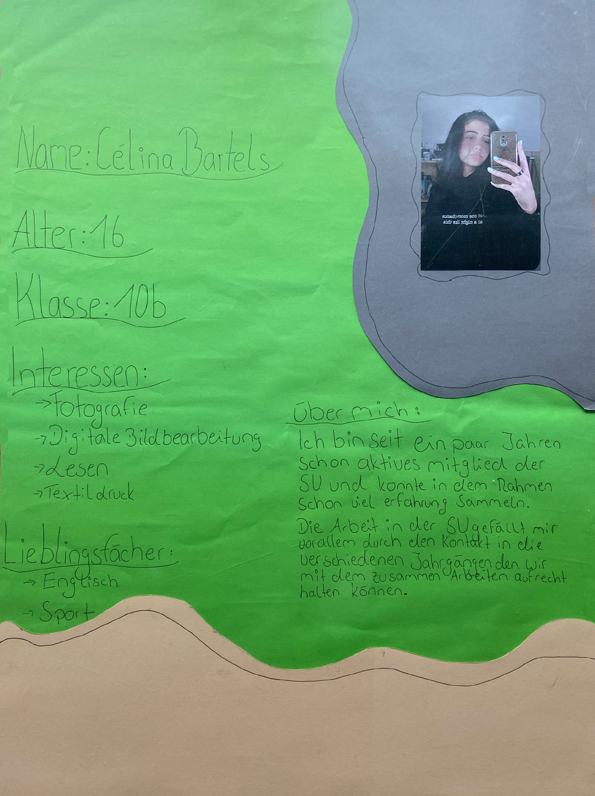 Name: Célina Bartels
Alter: 16
Klasse: 10b
Interessen:
→ Fotografie
→ Digitale Bildbearbeitung
→ Lesen
→ Textildruck
Lieblingsfächer:
→ Englisch
→ Sport
über mich:
Ich bin seit ein paar Jahren
schon aktives mitglied der
SU und konnte in dem Rahmen
schon viel erfahrung Sammeln.
Die Arbeit in der SU gefällt mir
vorallem durch den Kontakt in die
verschiedenen Jahrgängen den wir
mit dem zusammen Arbeiten aufrecht
halten können.